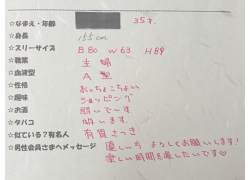 ☆なまえ・年齢 35才
☆身長 155cm
☆スリーサイズ B80 W63 H89
☆職業 主婦
☆血液型 A型
☆性格 おっちょこちょい
☆趣味 ショッピング
☆お酒 弱いでーす
☆タバコ 吸います
☆似ている?有名人 有賀さつき
☆男性会員さまへメッセージ 優しい方 よろしくお願いします!
楽しい時間を過したいです♡